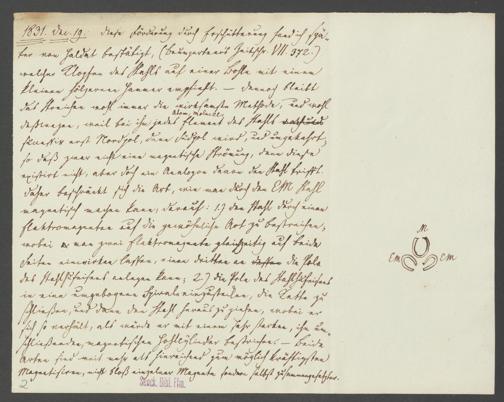 1831. Dec. 19. diese Förderung durch Erschütterung fand ich spä-
ter von Haldat bestätigt, (Baumgartners Zeitschr. VII 372.)
welcher Klopfen des Stahls auf einer Bohle mit einem
kleinen hölzernen Hammer empfiehlt. — dennoch bleibt
das Streichen wohl immer die wirksamste Methode, und wohl
deßwegen, weil bei ihr jedes Element des Stahls
Atom, Molecül,
erst Nordpol, dann Südpol wird, und umgekehrt,
so daß zwar nicht eine magnetische Strömung, denn diese
existirt nicht, aber doch ein Analogon davon den Stahl trifft.
daher beschränkt sich die Art, wie man durch den EM Stahl
magnetisch machen kann, darauf: 1.) den Stahl durch einen
Elektromagneten auf die gewöhnliche Art zu bestreichen,
wobei man zwei Elektromagnete gleichzeitig auf beide
Seiten einwirken lassen, einen dritten an die Pole
des Stahlhufeisens anlegen kann; 2.) die Pole des Stahlhufeisens
in eine umgebogene Spirale einzustellen, die Kette zu
schließen, und dann den Stahl heraus zu ziehen, wobei er
sich so verhält, als würde er mit einem sehr starken, ihn um-
schließenden, magnetischen Hohlcylinder bestrichen. — beide
Arten sind mit mehr als hinreichend zum möglich kräftigsten
Magnetisiren, nicht bloß einzelner Magnete sondern selbst zusammengesetzter.
2
Stadt. Bibl. Ffm.
M.
Em
Em